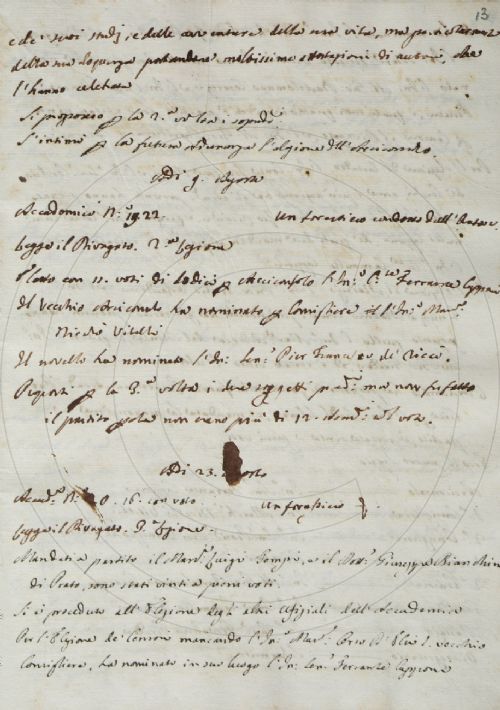 13
e de' suoi studj, e delle avventure della sua vita, ma particolarmente
della sua eloquenza portandone moltissime attestazioni di autori, che
l'hanno celebrata
Si proposero p la 2.ª volta i sopradd.
S'intimò p la futura adunanza l'elezione dell'Arciconsolo.
Adi 9. Agosto
Accademici N.º 19. 22. un forestiero condotto dall'
Legge il Rivogato. 2.ª Lezione
Eletto con 11. voti di dodici p Arciconsolo l'Ill.º Ferrante Capponi
Il Vecchio Arciconsolo ha nominato p Consigliere il l'Ill.º Mar.
Niccolò Vitelli
Il novello ha nominato l'Ill. Sen. Pier Francesco de' Ricci.
Proposti p la 3.ª volta i due soggetti ma non fu fatto
il partito non erano più di 12. Accad.
Adi 23. Agosto
Accad. N.º 20. 16. con voto un forestiero
Legge il Rivogato. 3.ª Lezione.
Mandati a partito il Mar. Luigi e il Giuseppe Bianchini
di Prato, sono stati vinti a pieni voti.
Si è proceduto all'Elezione degli altri Ufiziali dell'Accademia
Per l'Elezione de' Censori mancando l'Ill. Mar. vecchio
Consigliere, ha nominato in suo luogo l'Ill. Sen. Ferrante Capponi